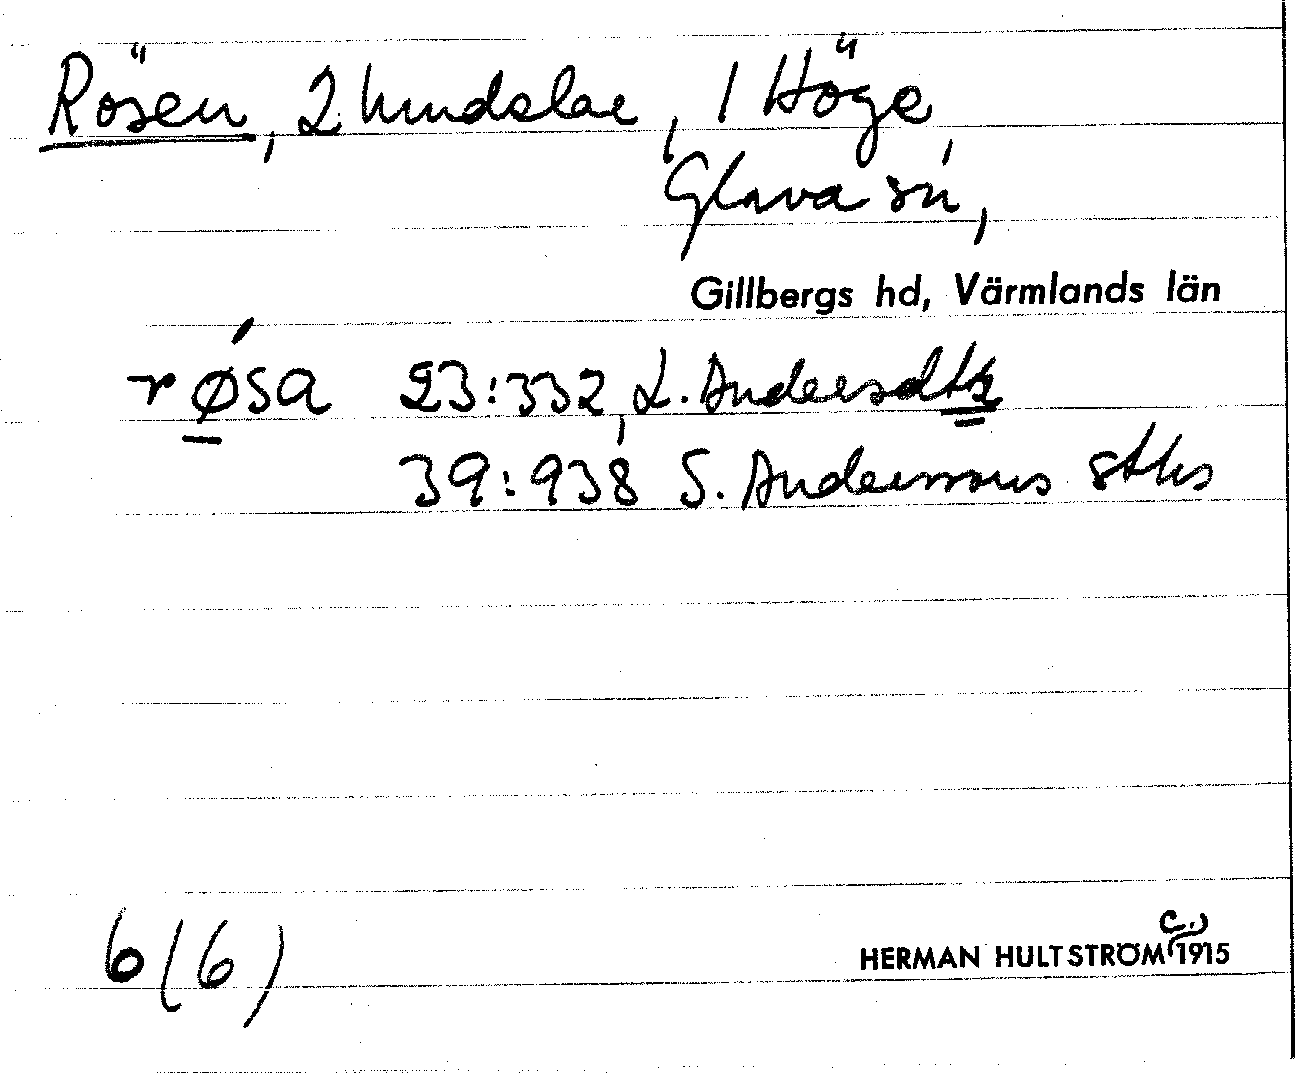 Rösen, 2 hmdelar, 1 Höge,
Glava sn,
Gillbergs hd, Värmlands län
røsa 23:332, L. Andersd
39:938 S. Anderssons
6(6)
HERMAN HULTSTRÖM (c. 1915